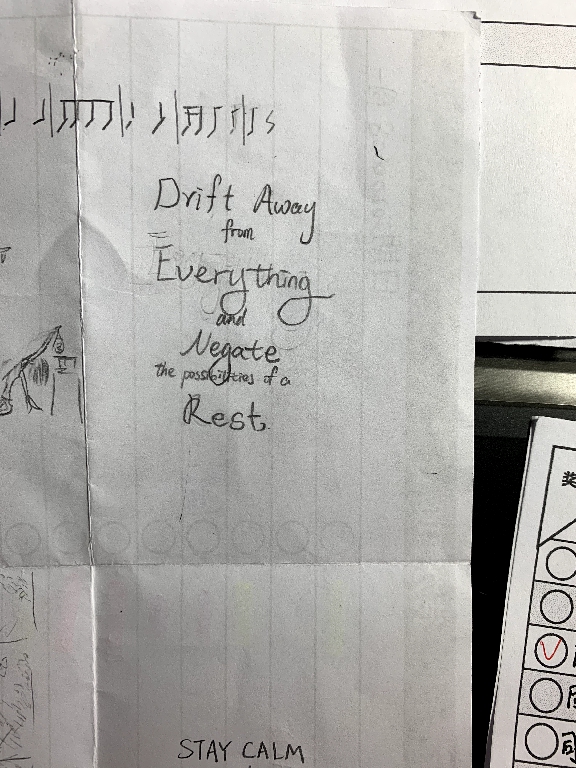 Drift Away
from
Everything
and
Negate
the possibilities of a
Rest.
STAY CALM